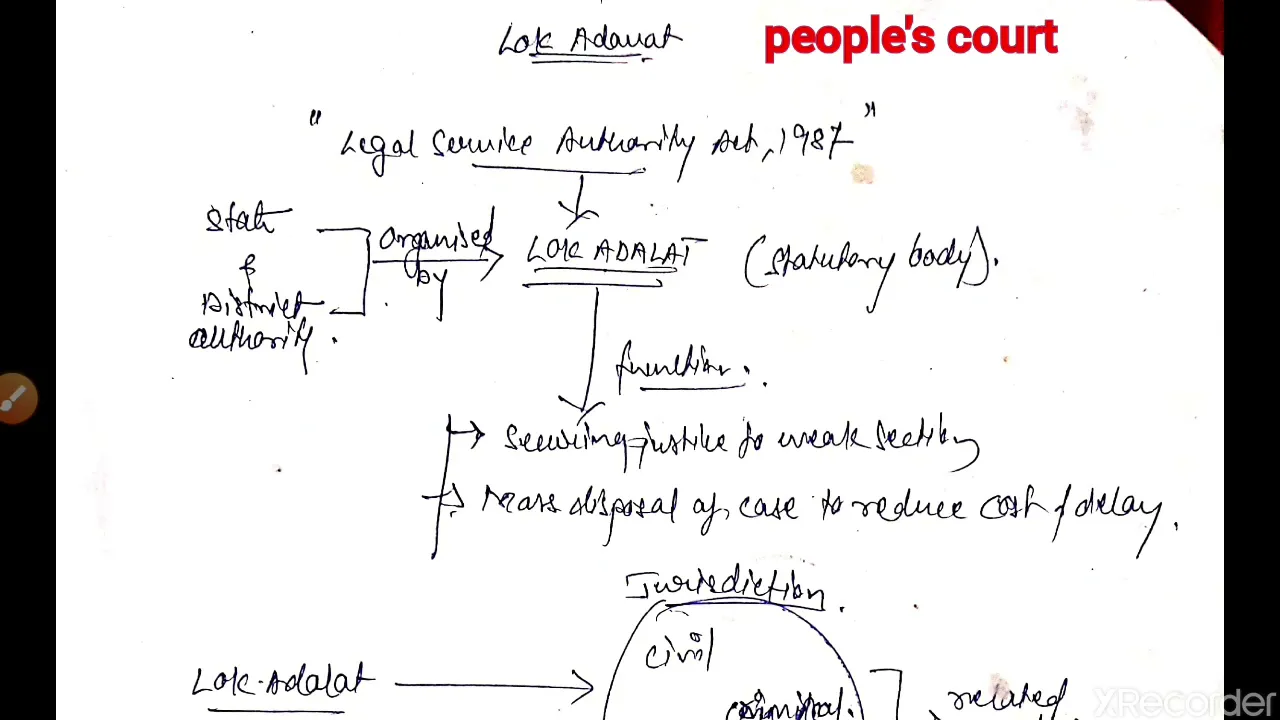 Lok Adalat
people's court
" Legal Service Authority Act, 1987 "
State
&
District
authority.
organised
by
LOK ADALAT (statutory body).
function.
→ Securing justice to weak section
→ Mass disposal of case to reduce cost & delay.
Jurisdiction.
civil
Lok-Adalat
criminal.
related
XRecorder